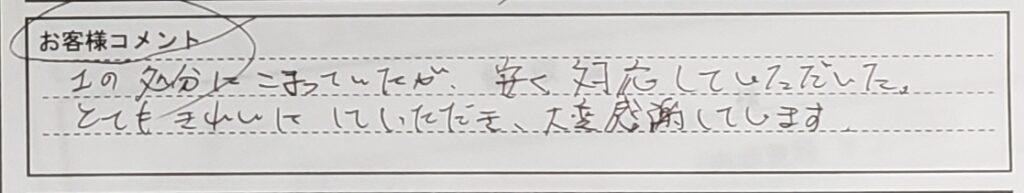 お客様コメント
1の処分にこまっていたが、安く対応していただいた。
とてもきれいにしていただき、大変感謝してします。